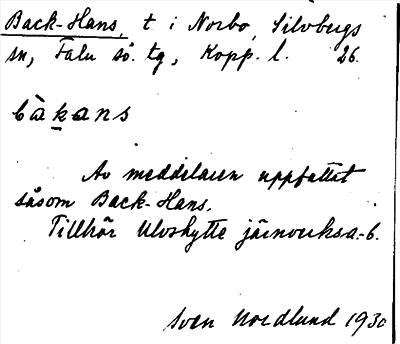 Back-Hans, t i Norbo, Silvbergs
sn, Falu sö. tg, Kopp. l. 26.
bàkans
Av meddelaren uppfattat
såsom Back-Hans.
Tillhör Ulvshytte järnverksa.-b.
Sven Nordlund 1930